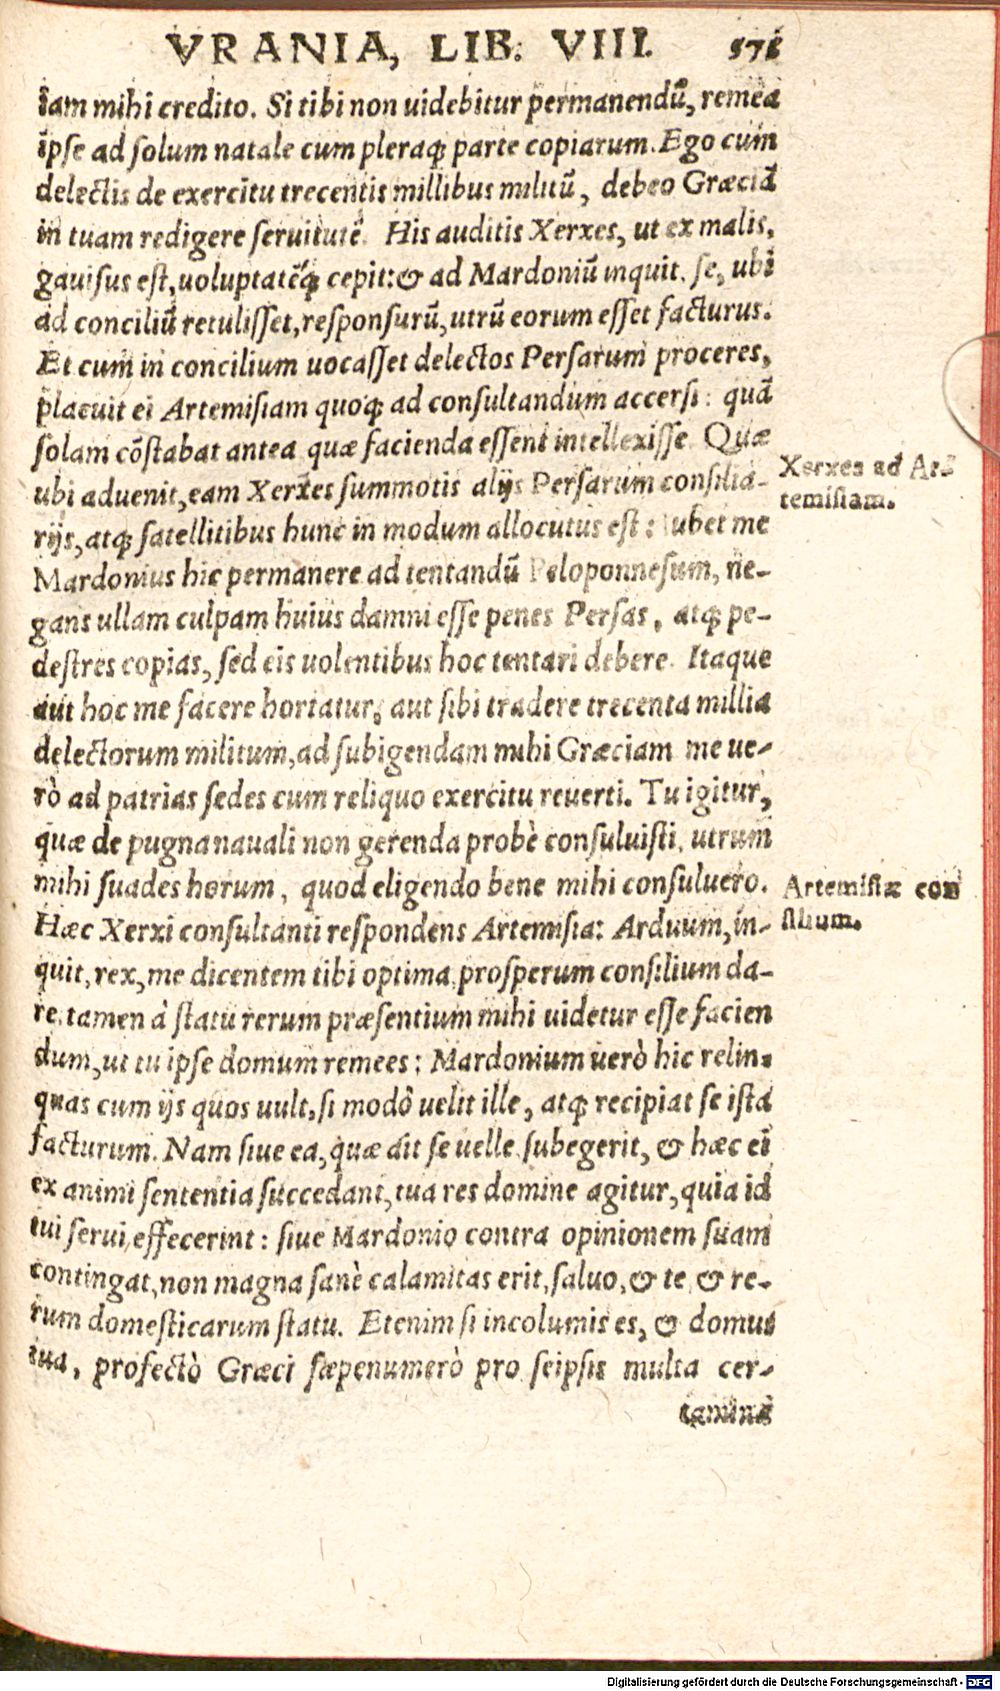 VRANIA, LIB. VIII. 571
iam mihi credito. Si tibi non uidebitur permanendũ, remea
ipse ad solum natale cum pleraq; parte copiarum. Ego cum
delectis de exercitu trecentis millibus militũ, debeo Græciã
in tuam redigere seruitutẽ. His auditis Xerxes, ut ex malis,
gauisus est, uoluptatẽq; cepit: & ad Mardoniũ inquit. se, ubi
ad conciliũ retulisset, responsurũ, utrũ eorum esset facturus.
Et cum in concilium uocasset delectos Persarum proceres,
placuit ei Artemisiam quoq; ad consultandum accersi: quã
solam cõstabat antea quæ facienda essent intellexisse. Quæ
ubi aduenit, eam Xerxes summotis alijs Persarum consilia-
rijs, atq; satellitibus hunc in modum allocutus est: Iubet me
Mardonius hic permanere ad tentandũ Peloponnesum, ne-
gans ullam culpam huius damni esse penes Persas, atq; pe-
destres copias, sed eis uolentibus hoc tentari debere. Itaque
aut hoc me facere hortatur, aut sibi tradere trecenta millia
delectorum militum, ad subigendam mihi Græciam me ue-
rò ad patrias sedes cum reliquo exercitu reuerti. Tu igitur,
quæ de pugna nauali non gerenda probè consuluisti, utrum
mihi suades horum, quod eligendo bene mihi consuluero.
Hæc Xerxi consultanti respondens Artemisia: Arduum, in-
quit, rex, me dicentem tibi optima, prosperum consilium da-
re. tamen à statu rerum præsentium mihi uidetur esse facien
dum, ut tu ipse domum remees: Mardonium uerò hic relin-
quas cum ijs quos uult, si modò uelit ille, atq; recipiat se ista
facturum. Nam siue ea, quæ ait se uelle subegerit, & hæc ei
ex animi sententia succedant, tua res domine agitur, quia id
tui serui effecerint: siue Mardonio contra opinionem suam
contingat, non magna sanè calamitas erit, saluo, & te, & re-
rum domesticarum statu. Etenim si incolumis es, & domus
tua, profectò Græci sæpenumerò pro seipsis multa cer-
tamina
Xerxes ad Ar-
temisiam.
Artemisiæ con
silium.
Digitalisierung gefördert durch die Deutsche Forschungsgemeinschaft - DFG